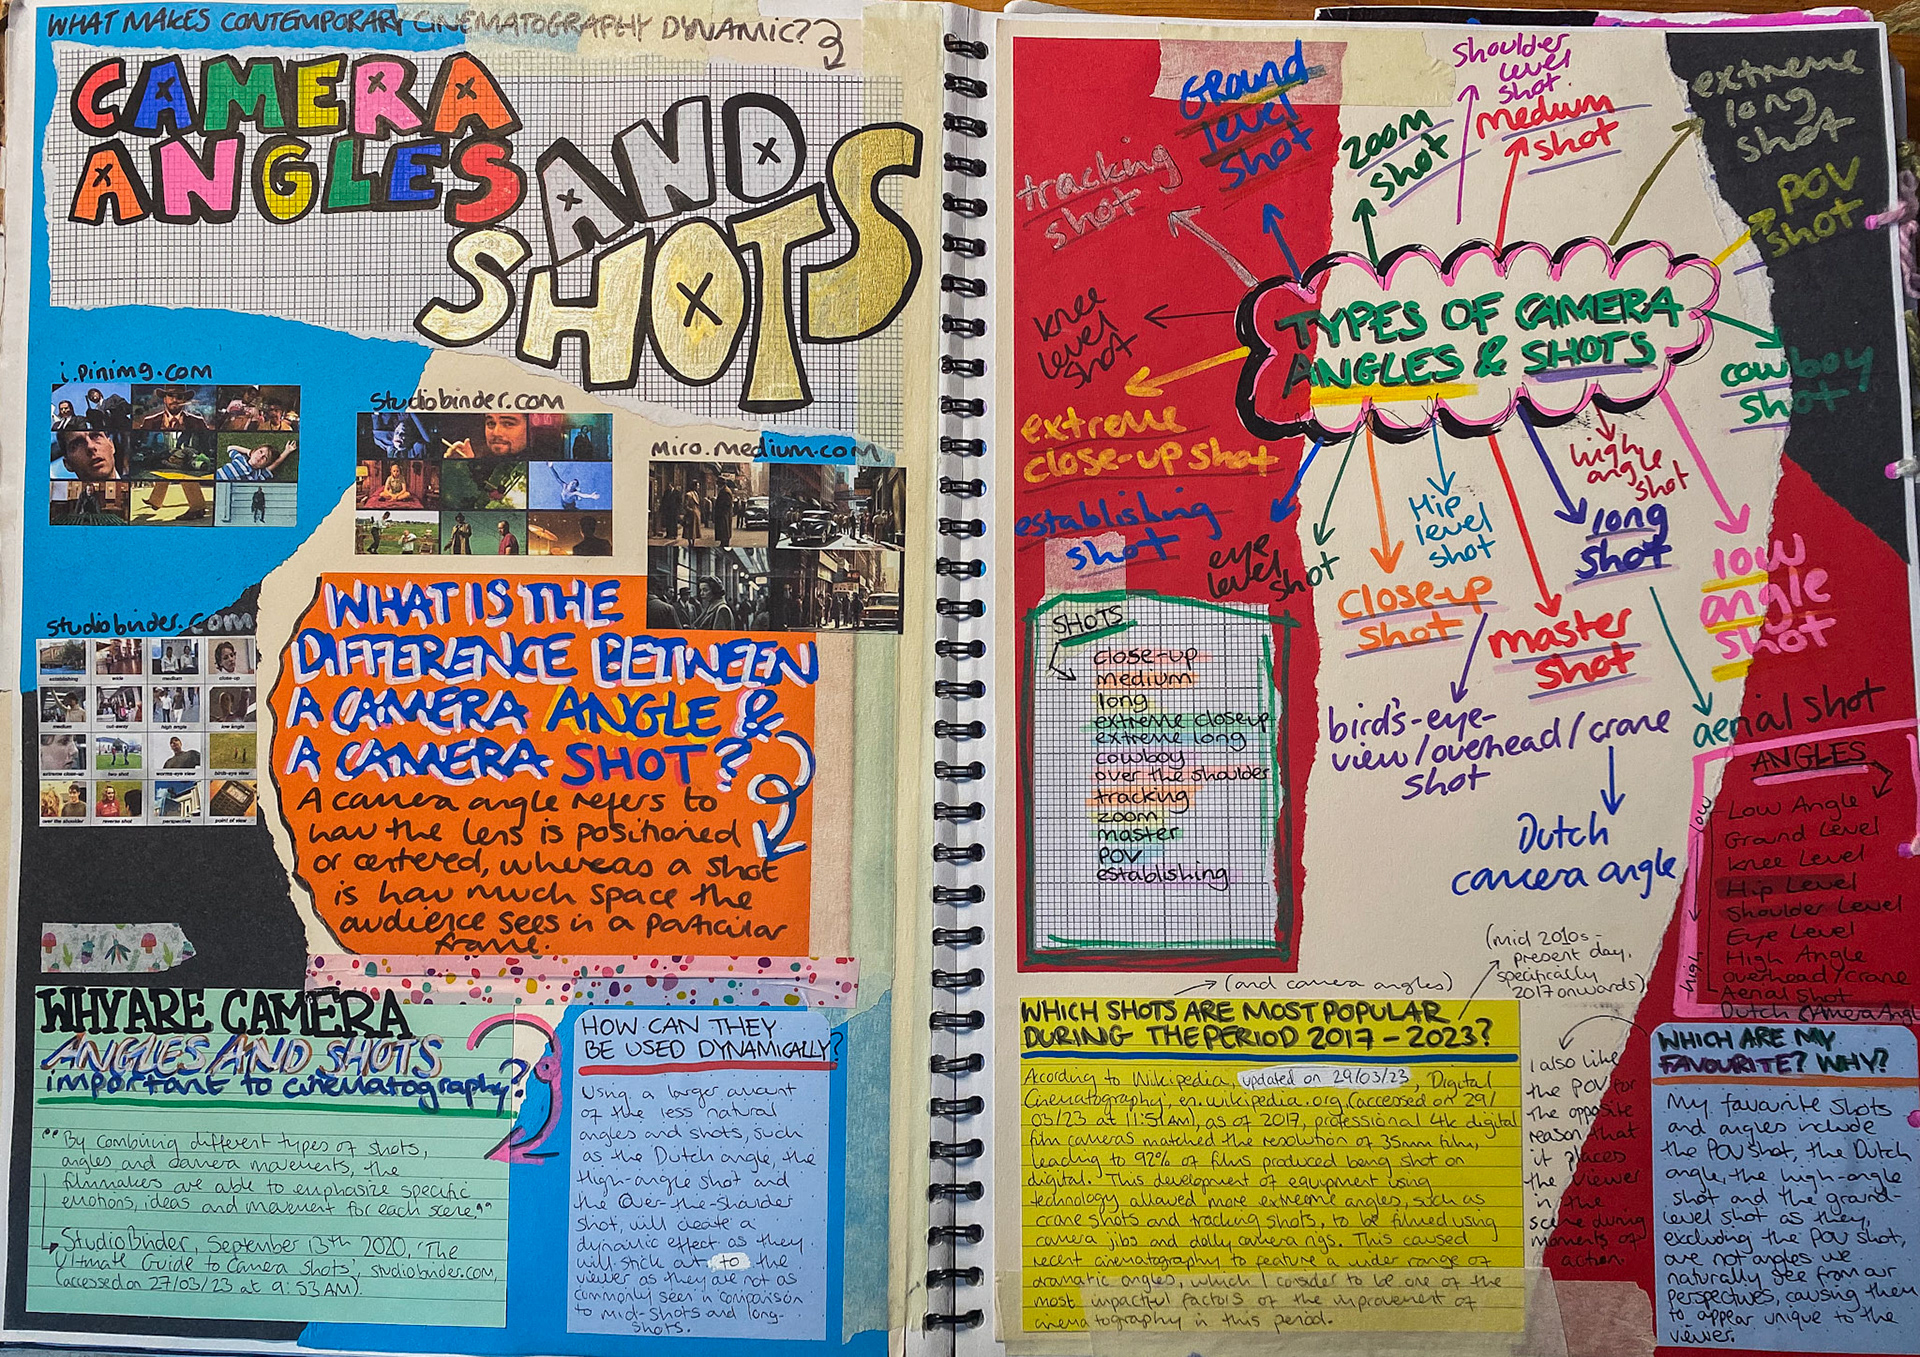 WHAT MAKES CONTEMPORARY CINEMATOGRAPHY DYNAMIC?
CAMERA
ANGLES
AND
SHOTS
i.pinimg.com
studiobinder.com
miro.medium.com
studiobinder.com
establishing wide medium close-up
medium cut-away high angle low angle
extreme close-up two shot worms-eye view birds-eye view
over the shoulder reverse shot perspective point of view
WHAT IS THE
DIFFERENCE BETWEEN
A CAMERA ANGLE &
A CAMERA SHOT?
A camera angle refers to
how the lens is positioned
or centered, whereas a shot
is how much space the
audience sees in a particular
frame.
WHY ARE CAMERA
ANGLES AND SHOTS
important to cinematography?
"By combining different types of shots,
angles and camera movements, the
filmmakers are able to emphasize specific
emotions, ideas and movement for each scene."
StudioBinder, September 13th 2020, 'The
Ultimate Guide to Camera Shots', studiobinder.com,
(accessed on 27/03/23 at 9:53AM).
HOW CAN THEY
BE USED DYNAMICALLY?
Using a larger amount
of the less natural
angles and shots, such
as the Dutch angle, the
High-angle shot and
the Over-the-Shoulder
shot, will create a
dynamic effect as they
will stick out to the
viewer as they are not as
commonly seen in comparison
to mid-shots and long-
shots.
TYPES OF CAMERA
ANGLES & SHOTS
tracking
shot
Ground
level
shot
zoom
shot
Shoulder
level
shot
medium
shot
extreme
long
shot
POV
shot
cowboy
shot
knee
level
shot
extreme
close-up shot
establishing
shot
eye
level
shot
close-up
shot
Hip
level
shot
master
shot
high
angle
shot
long
shot
low
angle
shot
bird's-eye-
view/overhead/crane
shot
aerial shot
Dutch
camera angle
SHOTS
close-up
medium
long
extreme closeup
extreme long
cowboy
over the shoulder
tracking
zoom
master
POV
establishing
ANGLES
low
high
Low Angle
Ground Level
Knee Level
Hip Level
Shoulder Level
Eye Level
High Angle
overhead/crane
Aerial Shot
Dutch Camera Angle
(and camera angles)
(mid 2010s -
present day,
specifically
2017 onwards)
WHICH SHOTS ARE MOST POPULAR
DURING THE PERIOD 2017 - 2023?
According to Wikipedia, updated on 29/03/23, 'Digital
Cinematography', en.wikipedia.org, (accessed on 29/
03/23 at 11:51AM), as of 2017, professional 4k digital
film cameras matched the resolution of 35mm film,
leading to 92% of films produced being shot on
digital. This development of equipment using
technology allowed more extreme angles, such as
crane shots and tracking shots, to be filmed using
camera jibs and dolly camera rigs. This caused
recent cinematography to feature a wider range of
dramatic angles, which I consider to be one of the
most impactful factors of the improvement of
cinematography in this period.
I also like
the POV for
the opposite
reason that
it places
the viewer
in the
scene during
moments of
action.
WHICH ARE MY
FAVOURITE? WHY?
My favourite shots
and angles include
the POV shot, the Dutch
angle, the high-angle
shot and the ground-
level shot as they,
excluding the POV shot,
are not angles we
naturally see from our
perspectives, causing them
to appear unique to the
viewer.